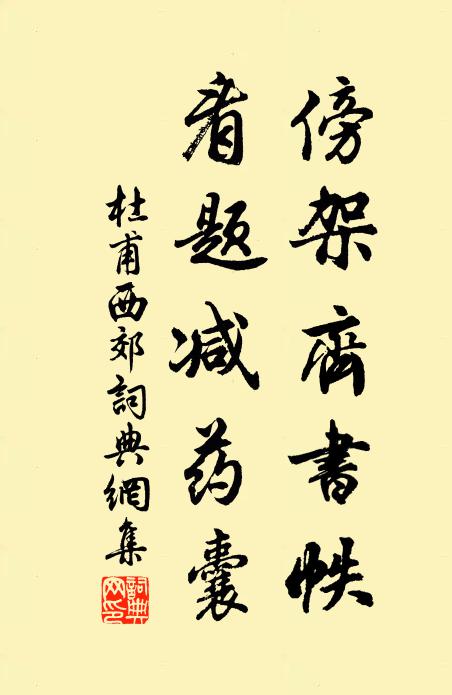 傍架齊書帙
看题减药囊
杜甫西郊詞典網集
詞典网印